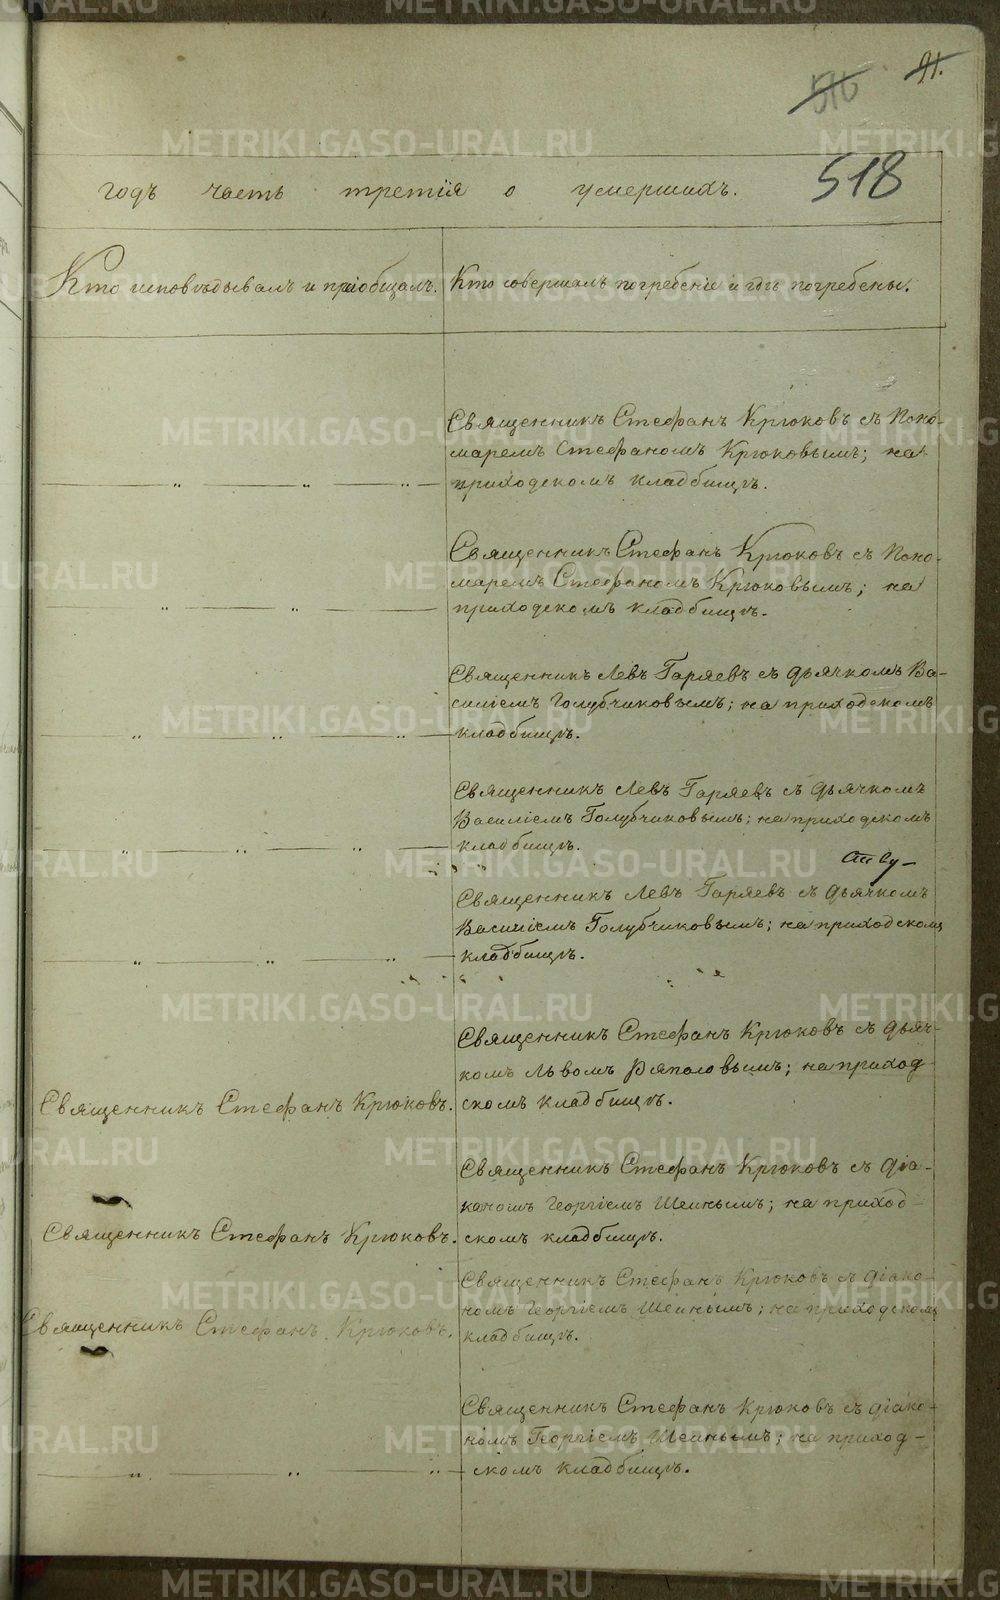 91.
516
518
годъ часть третія о умершихъ.
Кто исповѣдывалъ и пріобщалъ.
Кто совершалъ погребеніе и гдѣ погребены.
Священникъ Стефанъ Крюковъ съ Поно-
маремъ Стефаномъ Крюковымъ; на
приходскомъ кладбищѣ.
Священникъ Стефанъ Крюковъ съ Поно-
маремъ Стефаномъ Крюковымъ; на
приходскомъ кладбищѣ.
Священникъ Левъ Гаряевъ съ дьячкомъ Ва-
силіемъ Голубчиковымъ; на приходскомъ
кладбищѣ.
Священникъ Левъ Гаряевъ съ дьячкомъ
Василіемъ Голубчиковымъ; на приходскомъ
кладбищѣ.
Священникъ Левъ Гаряевъ съ дьячкомъ
Василіемъ Голубчиковымъ; на приходскомъ
кладбищѣ.
Священникъ Стефанъ Крюковъ.
Священникъ Стефанъ Крюковъ съ дьяч-
комъ Львомъ Ряполовымъ; на приход-
скомъ кладбищѣ.
Священникъ Стефанъ Крюковъ.
Священникъ Стефанъ Крюковъ съ діа-
кономъ Георгіемъ Шеинымъ; на приход-
скомъ кладбищѣ.
Священникъ Стефанъ Крюковъ.
Священникъ Стефанъ Крюковъ съ діако-
номъ Георгіемъ Шеинымъ; на приходскомъ
кладбищѣ.
Священникъ Стефанъ Крюковъ съ діако-
номъ Георгіемъ Шеинымъ; на приход-
скомъ кладбищѣ.
METRIKI.GASO-URAL.RU